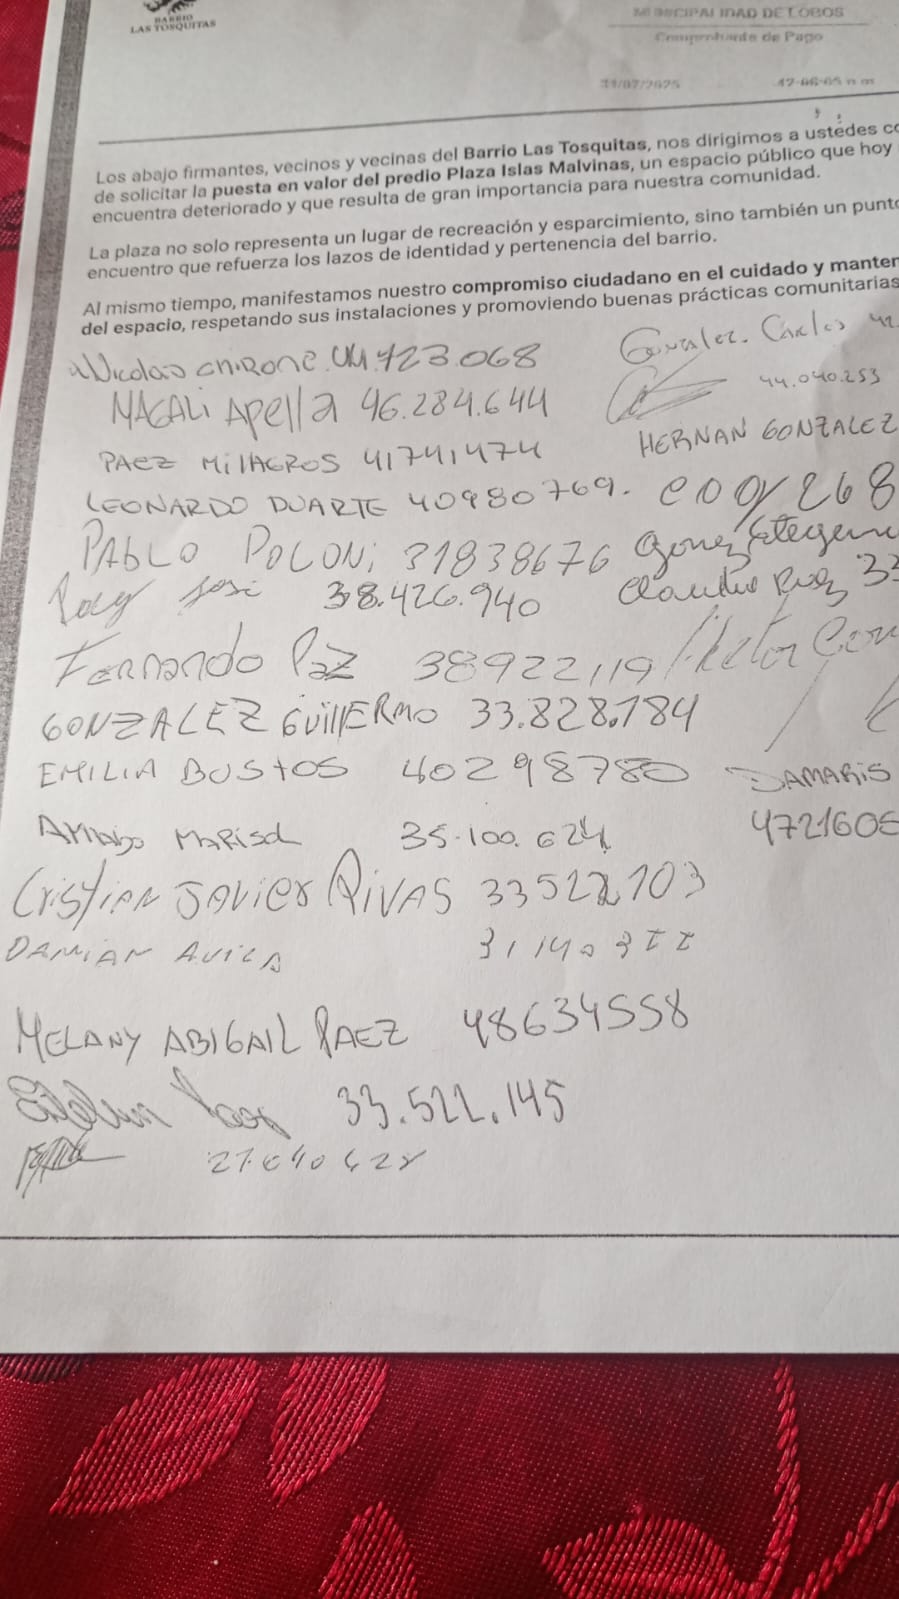 BARRIO
LAS TOSQUITAS
MUNICIPALIDAD DE LOBOS
Comprobante de Pago
Los abajo firmantes, vecinos y vecinas del Barrio Las Tosquitas, nos dirigimos a ustedes co
de solicitar la puesta en valor del predio Plaza Islas Malvinas, un espacio público que hoy
encuentra deteriorado y que resulta de gran importancia para nuestra comunidad.
La plaza no solo representa un lugar de recreación y esparcimiento, sino también un punto
encuentro que refuerza los lazos de identidad y pertenencia del barrio.
Al mismo tiempo, manifestamos nuestro compromiso ciudadano en el cuidado y manten
del espacio, respetando sus instalaciones y promoviendo buenas prácticas comunitarias
Nicolas CHIRONE 723.068
Gonzalez. Carlos 42
MAGALI Apella 46.284.644
44.040.253
PAEZ MILAGROS 41741474
HERNAN GONZALEZ
LEONARDO DUARTE 40980769.
268
PABLO POLONi 31838676
Gomez
José 38.426.940
Claudio 33
Fernando Paz 38922119
GONZALEZ GUILLERMO 33.828.784
EMILIA BUSTOS 40298780
DAMARIS
Marisol 35.100.624
4721605
Cristian Javier RIVAS
DAMIAN AVILA
MELANY ABIGAIL PAEZ 48634558
33.522.145